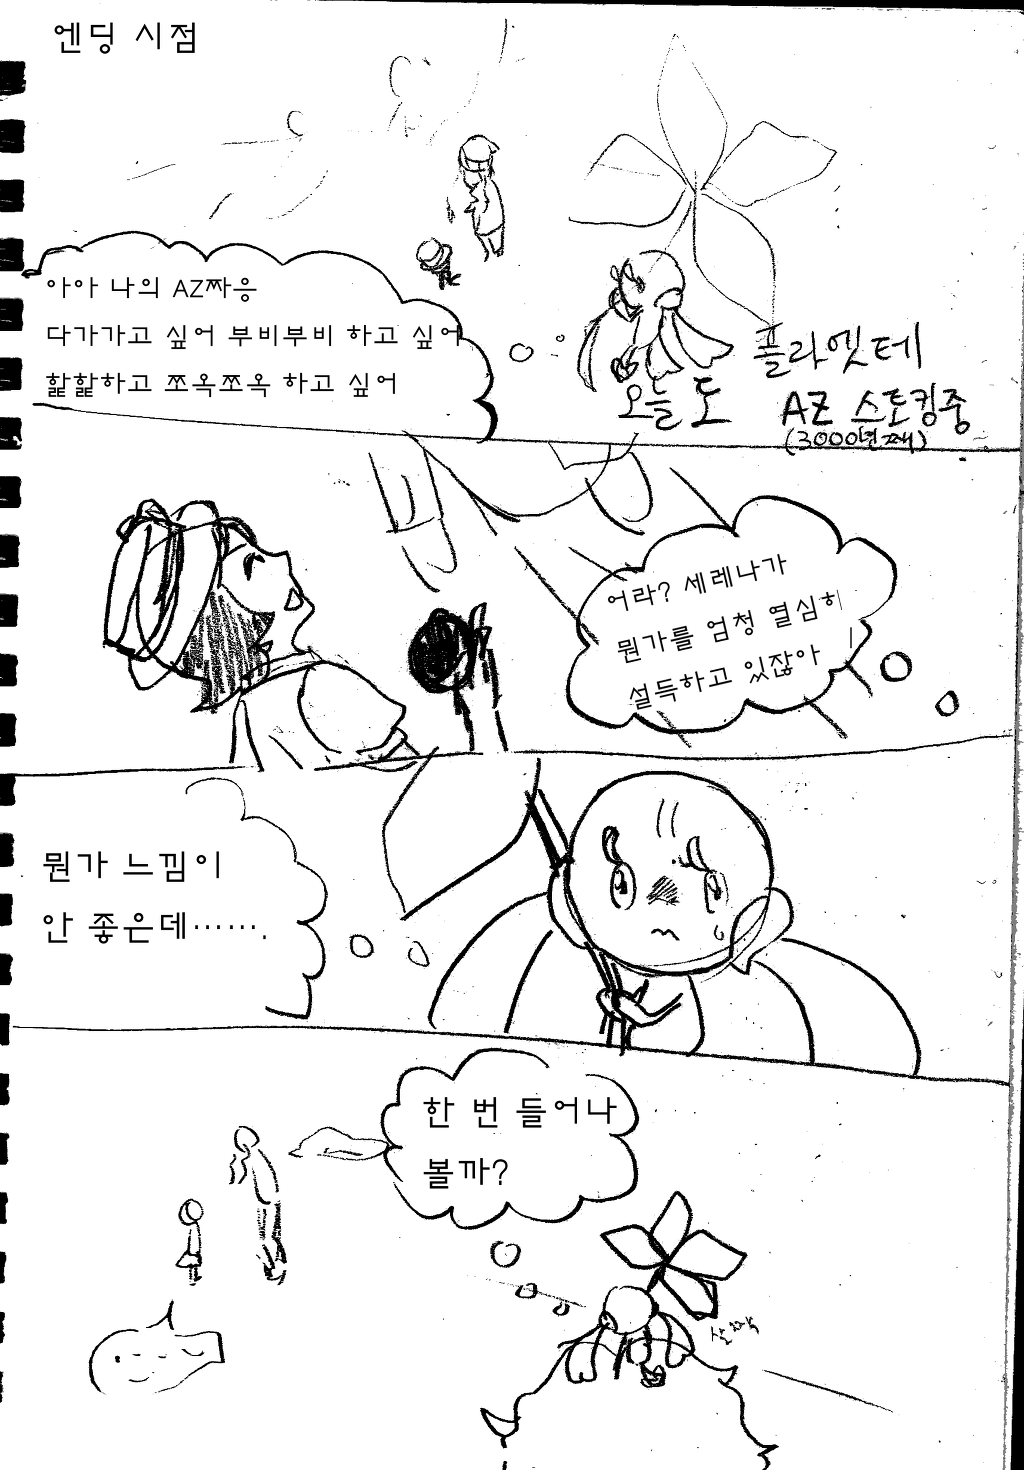 엔딩 시점
아아 나의 AZ짜응
다가가고 싶어 부비부비 하고 싶어
핥핥하고 쪼옥쪼옥 하고 싶어
플라엣테
오늘도 AZ 스토킹중
(3000년째)
어라? 세레나가
뭔가를 엄청 열심히
설득하고 있잖아
뭔가 느낌이
안 좋은데…….
한 번 들어나
볼까?
살짝